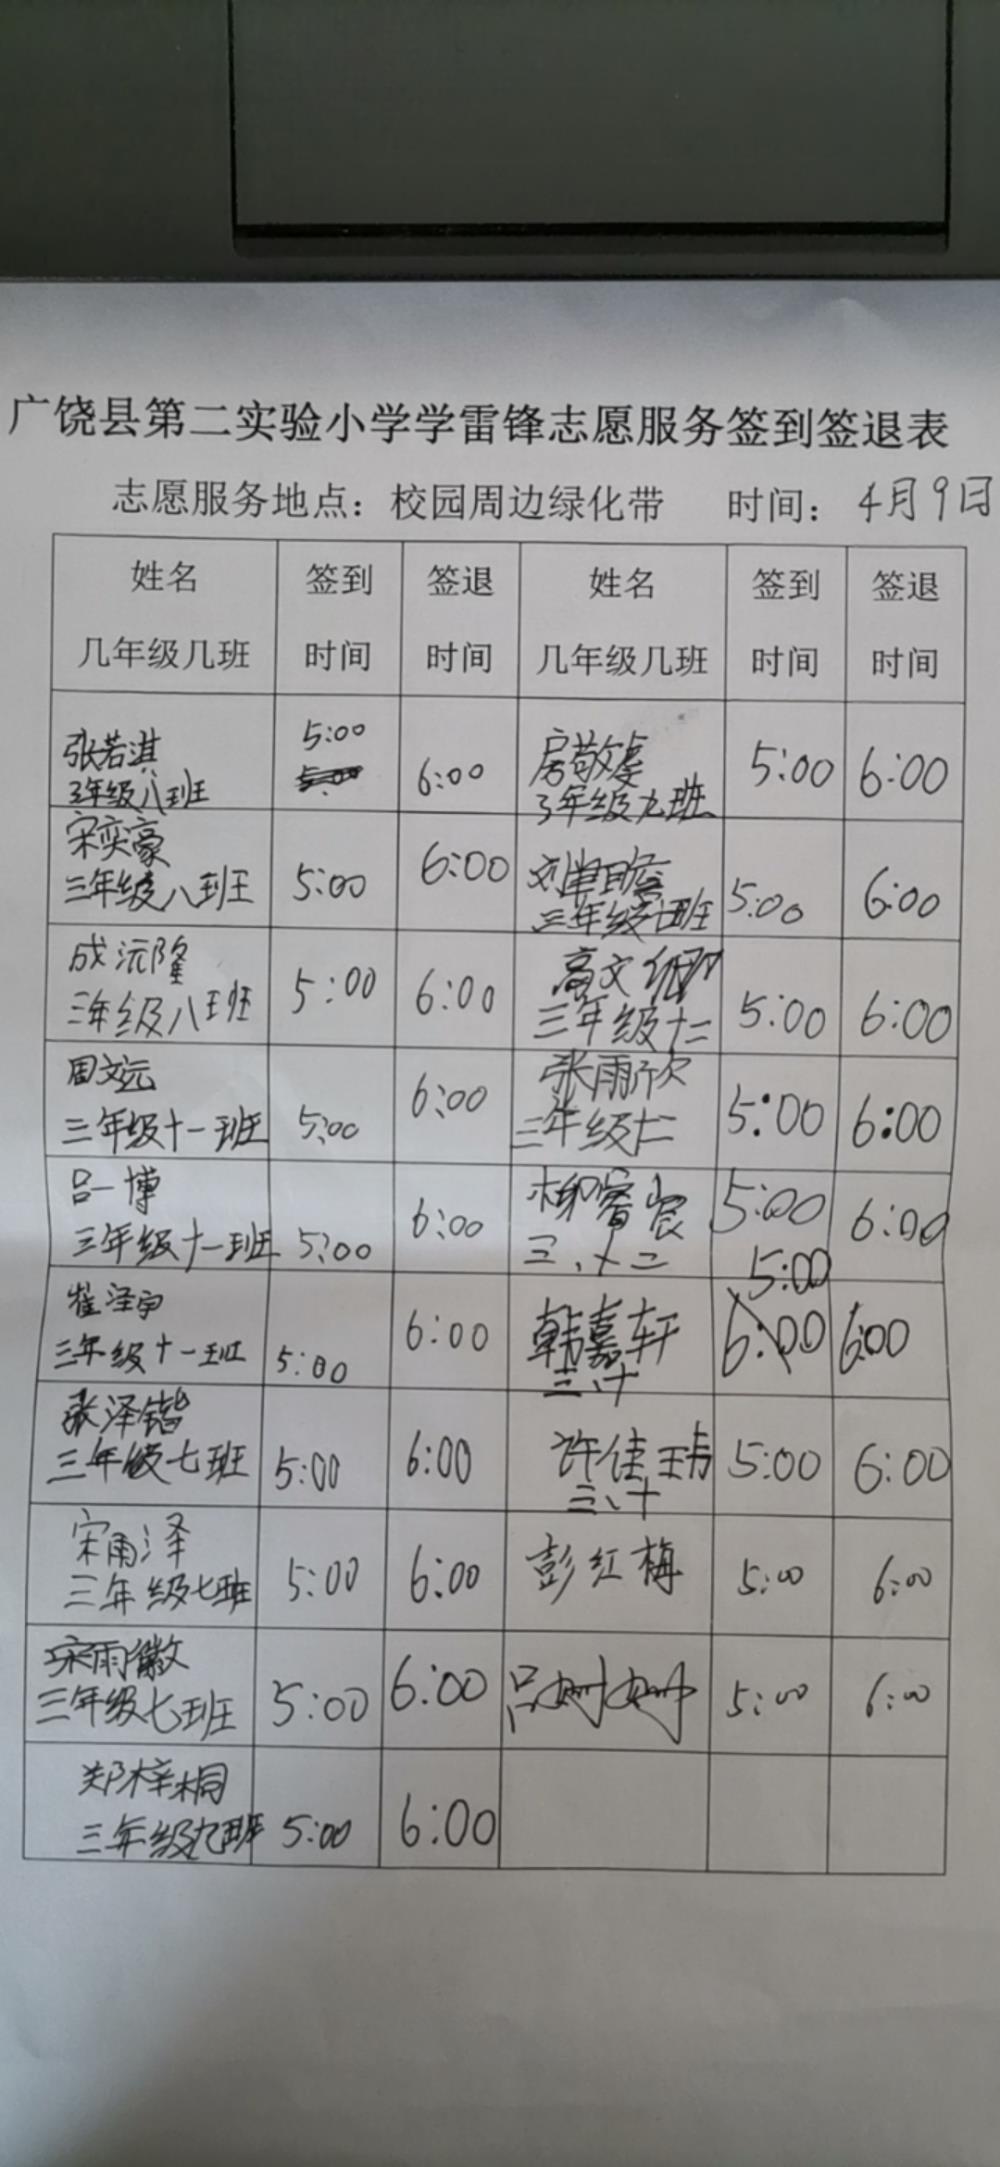 广饶县第二实验小学学雷锋志愿服务签到签退表
志愿服务地点：校园周边绿化带 时间：4月9日
姓名 签到 签退 姓名 签到 签退
几年级几班 时间 时间 几年级几班 时间 时间
张若淇 5:00 6:00 房敬虔 5:00 6:00
3年级八班 3年级九班
宋奕豪 5:00 6:00 刘 5:00 6:00
三年级八班 三年级 班
成沅隆 5:00 6:00 高文 5:00 6:00
三年级八班 三年级十二
周文远 5:00 6:00 张雨欣 5:00 6:00
三年级十一班 三年级十二
吕一博 5:00 6:00 柳睿宸 5:00 6:00
三年级十一班 三、十二
崔泽宇 5:00 6:00 韩嘉轩 5:00 6:00 6:00
三年级十一班 三、十
张泽锴 5:00 6:00 许佳 5:00 6:00
三年级七班 三、十
宋雨泽 5:00 6:00 彭红梅 5:00 6:00
三年级七班
宋雨徽 5:00 6:00 吕姗姗 5:00 6:00
三年级七班
郑梓桐 5:00 6:00
三年级九班